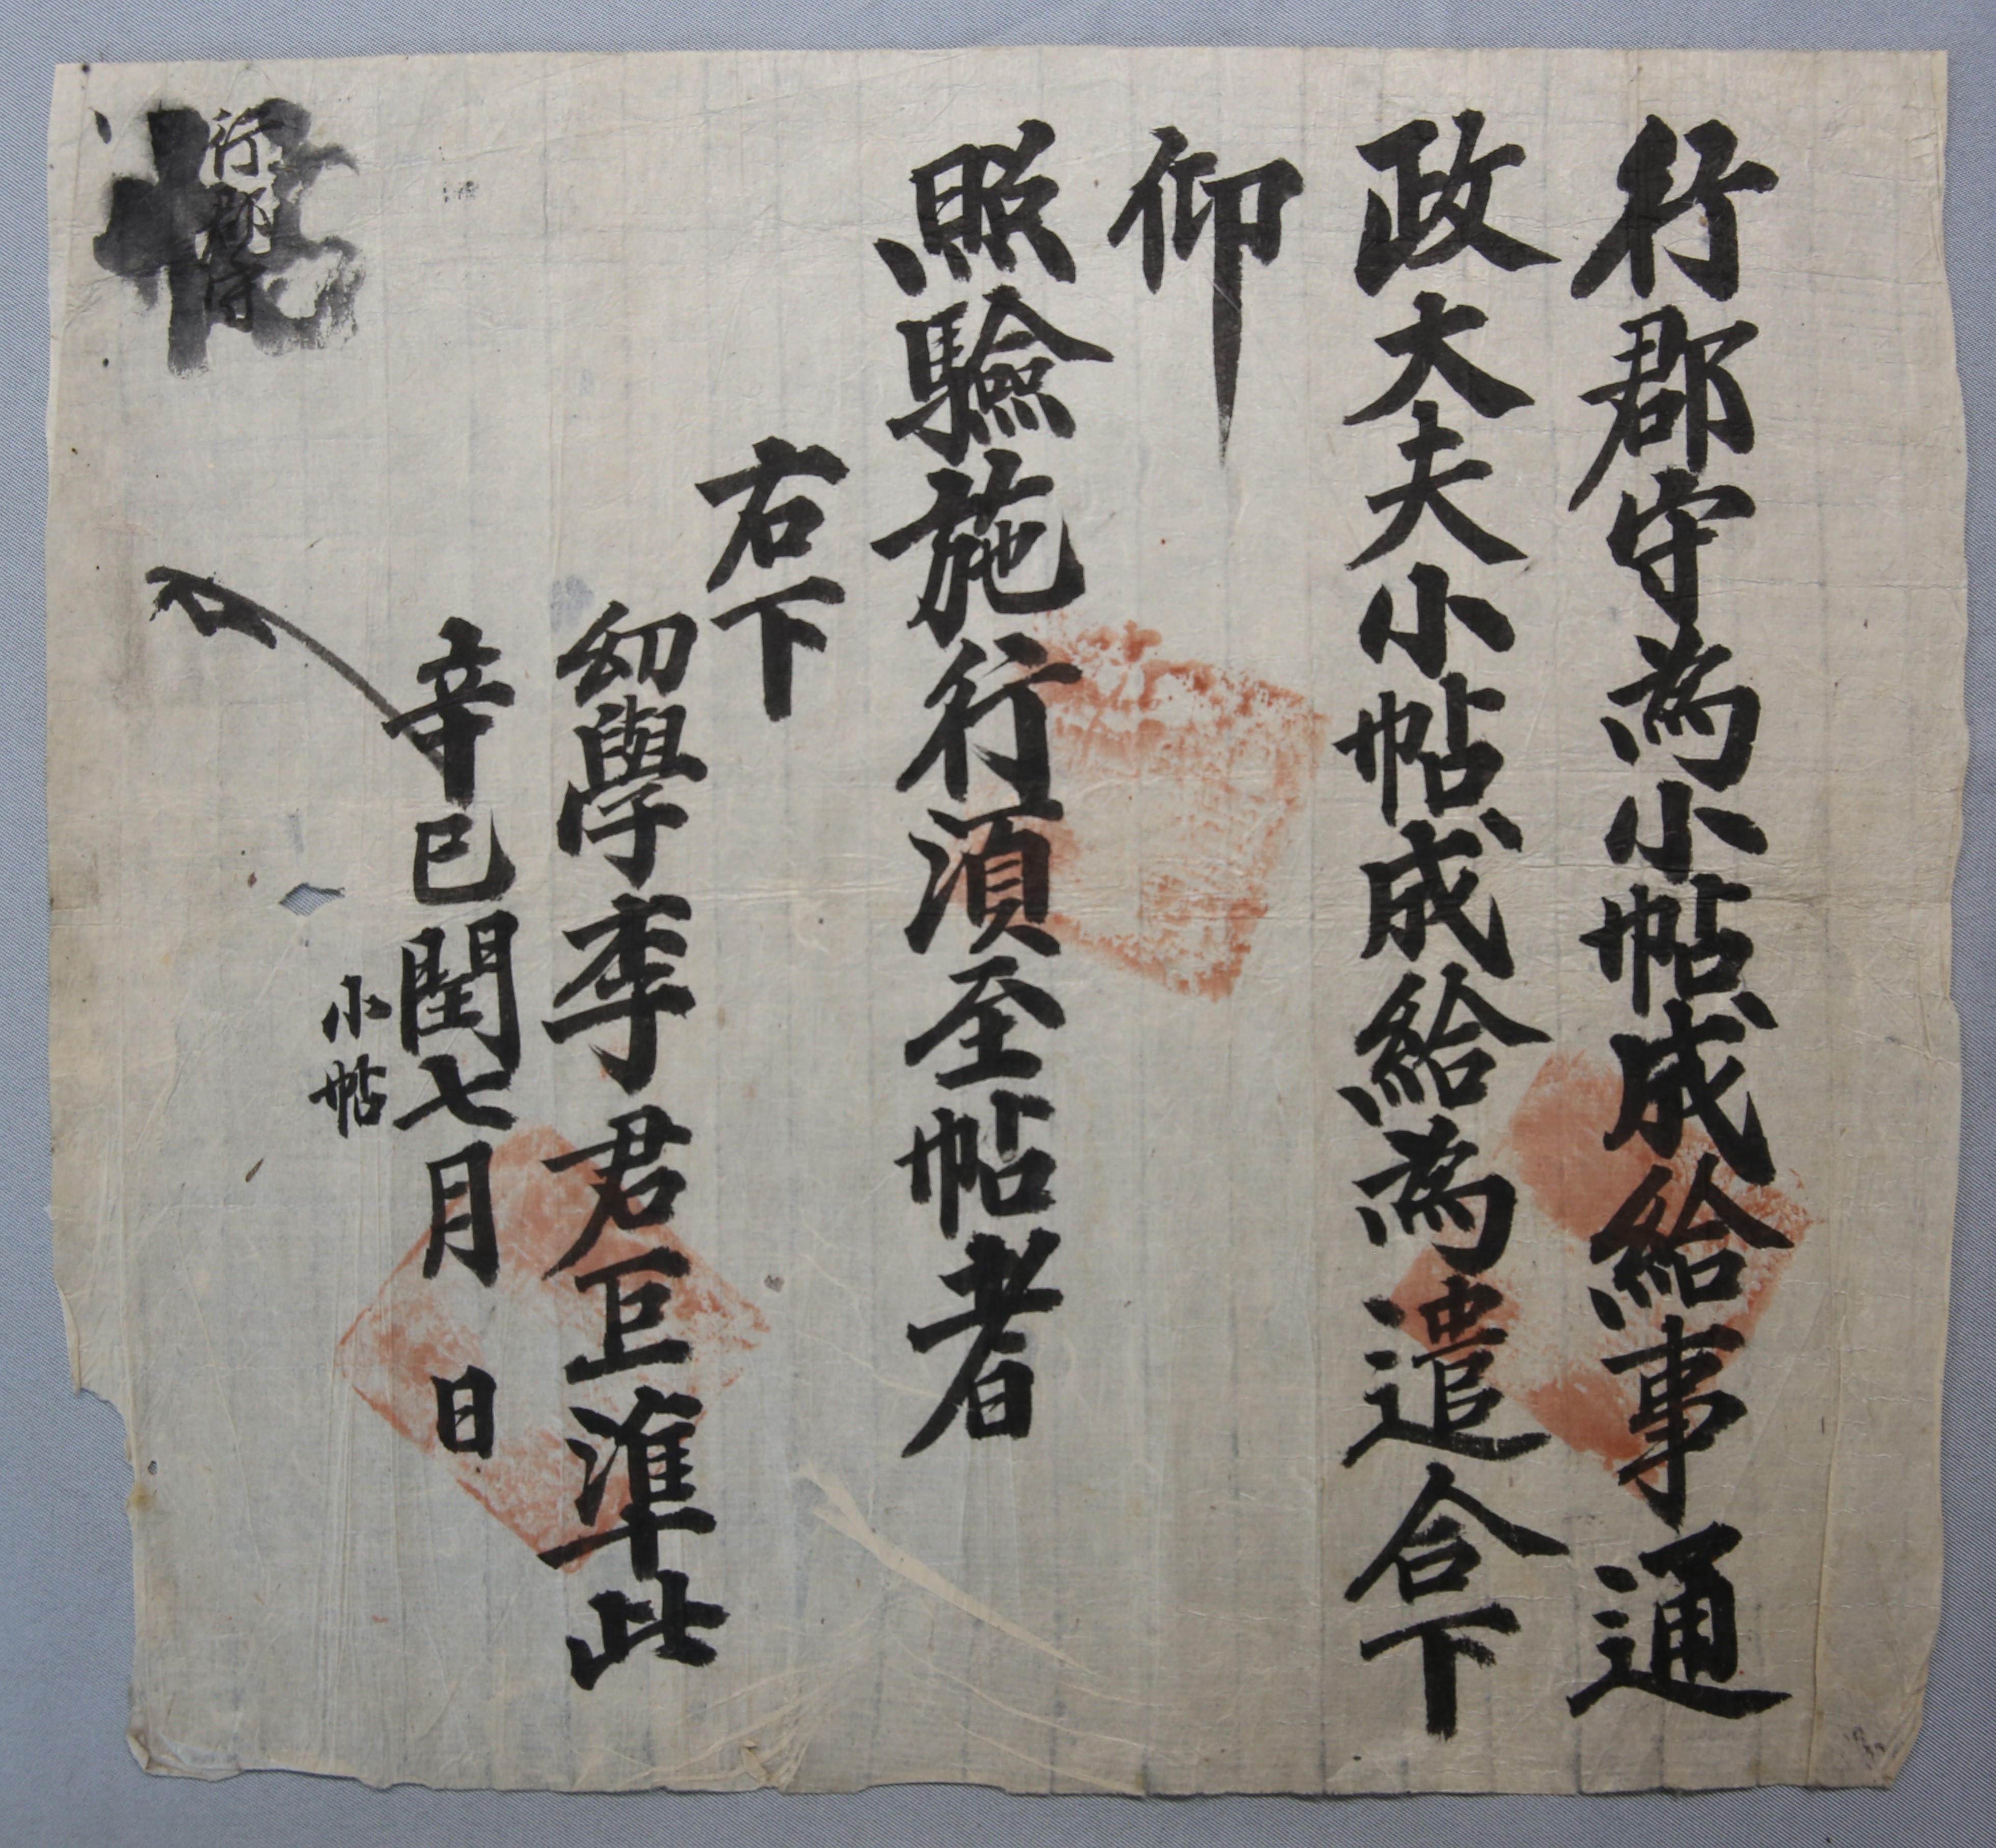 行郡守為小帖成給事通
政大夫小帖成給為遣合下
仰
照驗施行須至帖者
右下
幼學李君巨準此
辛巳閏七月 日
小帖
行郡守